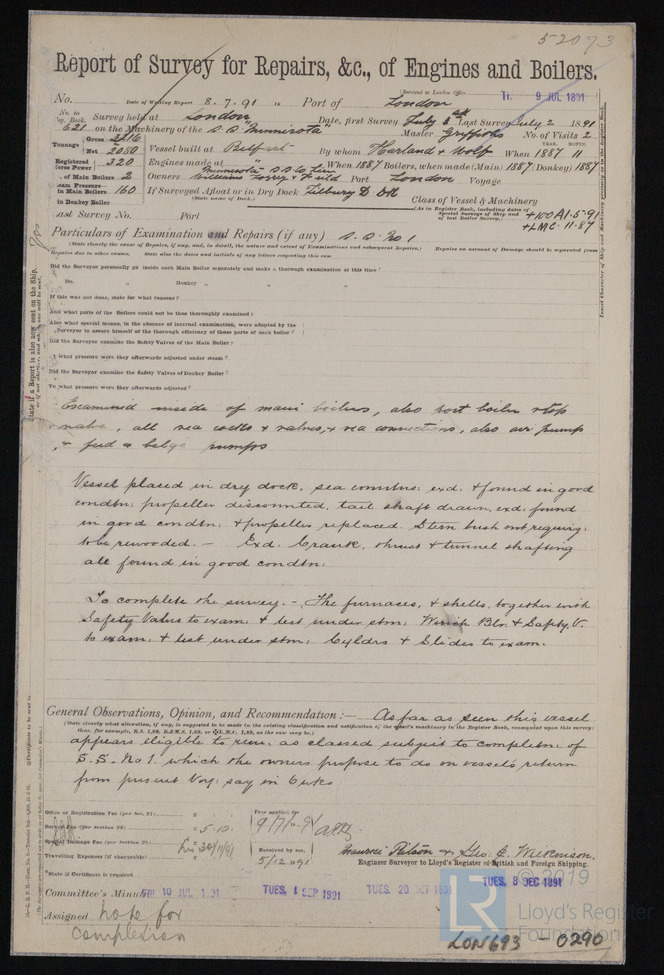 52073
Report of Survey for Repairs, &c., of Engines and Boilers.
(Received at London Office
9 JUL 1891
No. Date of Writing Report 8. 7. 91 Port of London
No. in Reg. Book. Survey held at London Date, first Survey July 1st Last Survey July 2 1891
621 on the Machinery of the S.S. "Minnesota" Master Griffiths No. of Visits 2
Tonnage Gross Net 2050 Vessel built at Belfast By whom Harland & Wolf When 1887 11
YEAR. MONTH.
Registered Horse Power 320 Engines made at When 1887 Boilers, when made (Main) 1887 (Donkey) 1887
No. of Main Boilers 2 Owners Port London Voyage
Steam Pressure in Main Boilers 160 If Surveyed Afloat or in Dry Dock Tilbury D Dk
(State name of Dock.)
in Donkey Boiler
Class of Vessel & Machinery
(As in Register Book, including dates of Special Surveys of Ship and of last Boiler Survey.)
+100A1.5.91
+LMC.11.87
Last Survey No. Port
Particulars of Examination and Repairs (if any) S.S. No 1
(State clearly the cause of Repairs, if any, and, in detail, the nature and extent of Examinations and subsequent Repairs. Repairs on account of Damage should be separated from
Repairs due to other causes. State also the dates and initials of any letters respecting this case.
Did the Surveyor personally go inside each Main Boiler separately and make a thorough examination at this time?
Do. " Donkey " " "
If this was not done, state for what reasons?
And what parts of the Boilers could not be thus thoroughly examined?
Also what special means, in the absence of internal examination, were adopted by the
Surveyor to assure himself of the thorough efficiency of those parts of each boiler?
Did the Surveyor examine the Safety Valves of the Main Boiler?
To what pressure were they afterwards adjusted under steam?
Did the Surveyor examine the Safety Valves of Donkey Boiler?
To what pressure were they afterwards adjusted?
Examined inside of main boilers, also port boiler stop
valve, all sea cocks & valves, & sea connections, also air pump
& feed & bilge pumps
Vessel placed in dry dock, sea conntns: exd: & found in good
condtn: propeller dismounted, tail shaft drawn, exd: found
in good condtn: & propeller replaced. Stern bush not requirg:
to be rewooded. – Exd: Crank, thrust & tunnel shafting
all found in good condtn:
To complete the survey. – The furnaces, & shells, together with
Safety Valves to exam: & test under stm: Winch Blr: & Safty. V.
to exam: & test under stm: Cyldrs & Slides to exam:
General Observations, Opinion, and Recommendation:— As far as seen this vessel
(State clearly what alteration, if any, is suggested to be made in the existing classification and notification of the vessel's machinery in the Register Book, consequent upon this survey:
appears eligible to remn: as classed subject to completn: of
S.S. No 1. which the owners propose to do on vessels return
from present Voy: say in 6 wks
Office or Registration Fee (per Sec. 27)
Survey Fee (per Section 28) £ 5.10.
Special Damage Fee (per Section 28)
Travelling Expenses (if chargeable)
Fee applied for
9/7/91
Received by me,
5/12 1891
Maurice Pilson & Geo. E. Wilkinson.
Engineer Surveyor to Lloyd's Register of British and Foreign Shipping.
*State if Certificate is required
Committee's Minute FRI 10 JUL 1891 TUES. 1 SEP 1891 TUES. 20 OCT 1891 TUES. 8 DEC 1891
Assigned note for
completion
© 2019
LR
Lloyd's Register
Foundation
LON693 - 0290